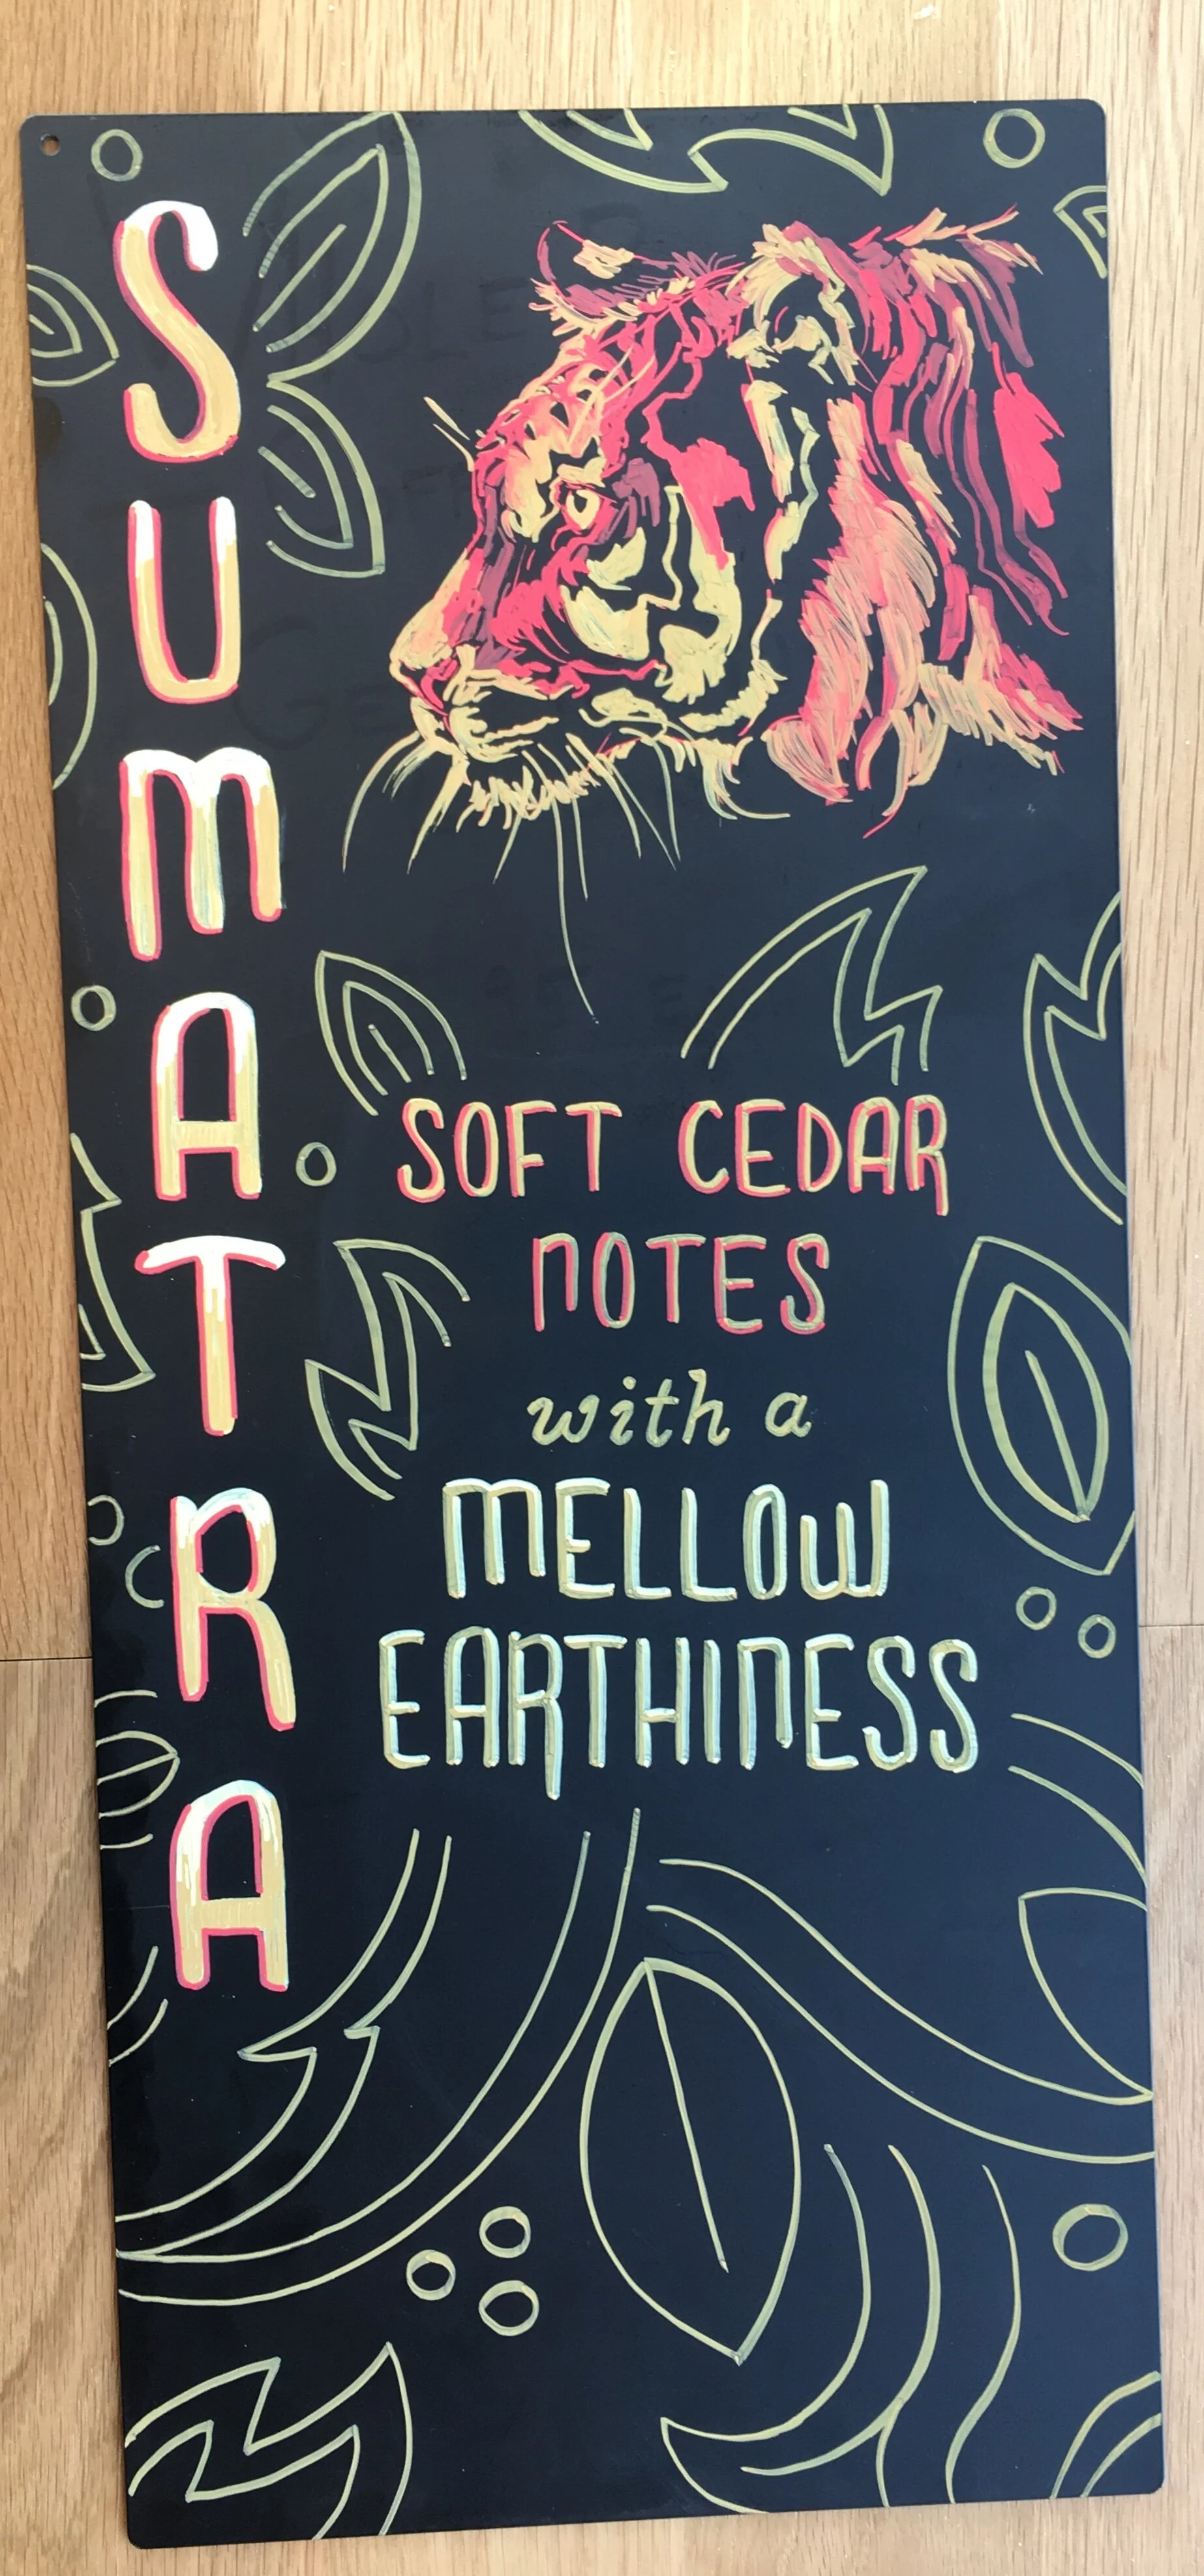 SUMATRA
SOFT CEDAR
NOTES
with a
MELLOW
EARTHINESS